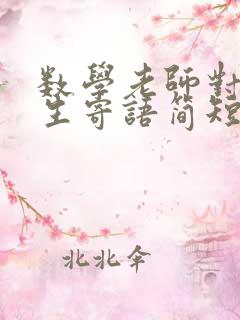 数學老師對
生寄語简短
北北伞